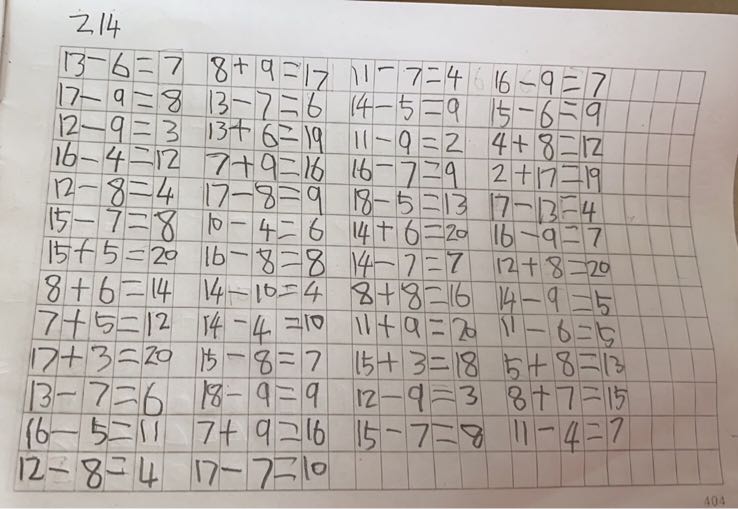 214
13-6=7 8+9=17 11-7=4 16-9=7
17-9=8 13-7=6 14-5=9 15-6=9
12-9=3 13+6=19 11-9=2 4+8=12
16-4=12 7+9=16 16-7=9 2+17=19
12-8=4 17-8=9 18-5=13 17-13=4
15-7=8 10-4=6 14+6=20 16-9=7
15+5=20 16-8=8 14-7=7 12+8=20
8+6=14 14-10=4 8+8=16 14-9=5
7+5=12 14-4=10 11+9=20 11-6=5
17+3=20 15-8=7 15+3=18 5+8=13
13-7=6 18-9=9 12-9=3 8+7=15
16-5=11 7+9=16 15-7=8 11-4=7
12-8=4 17-7=10
404